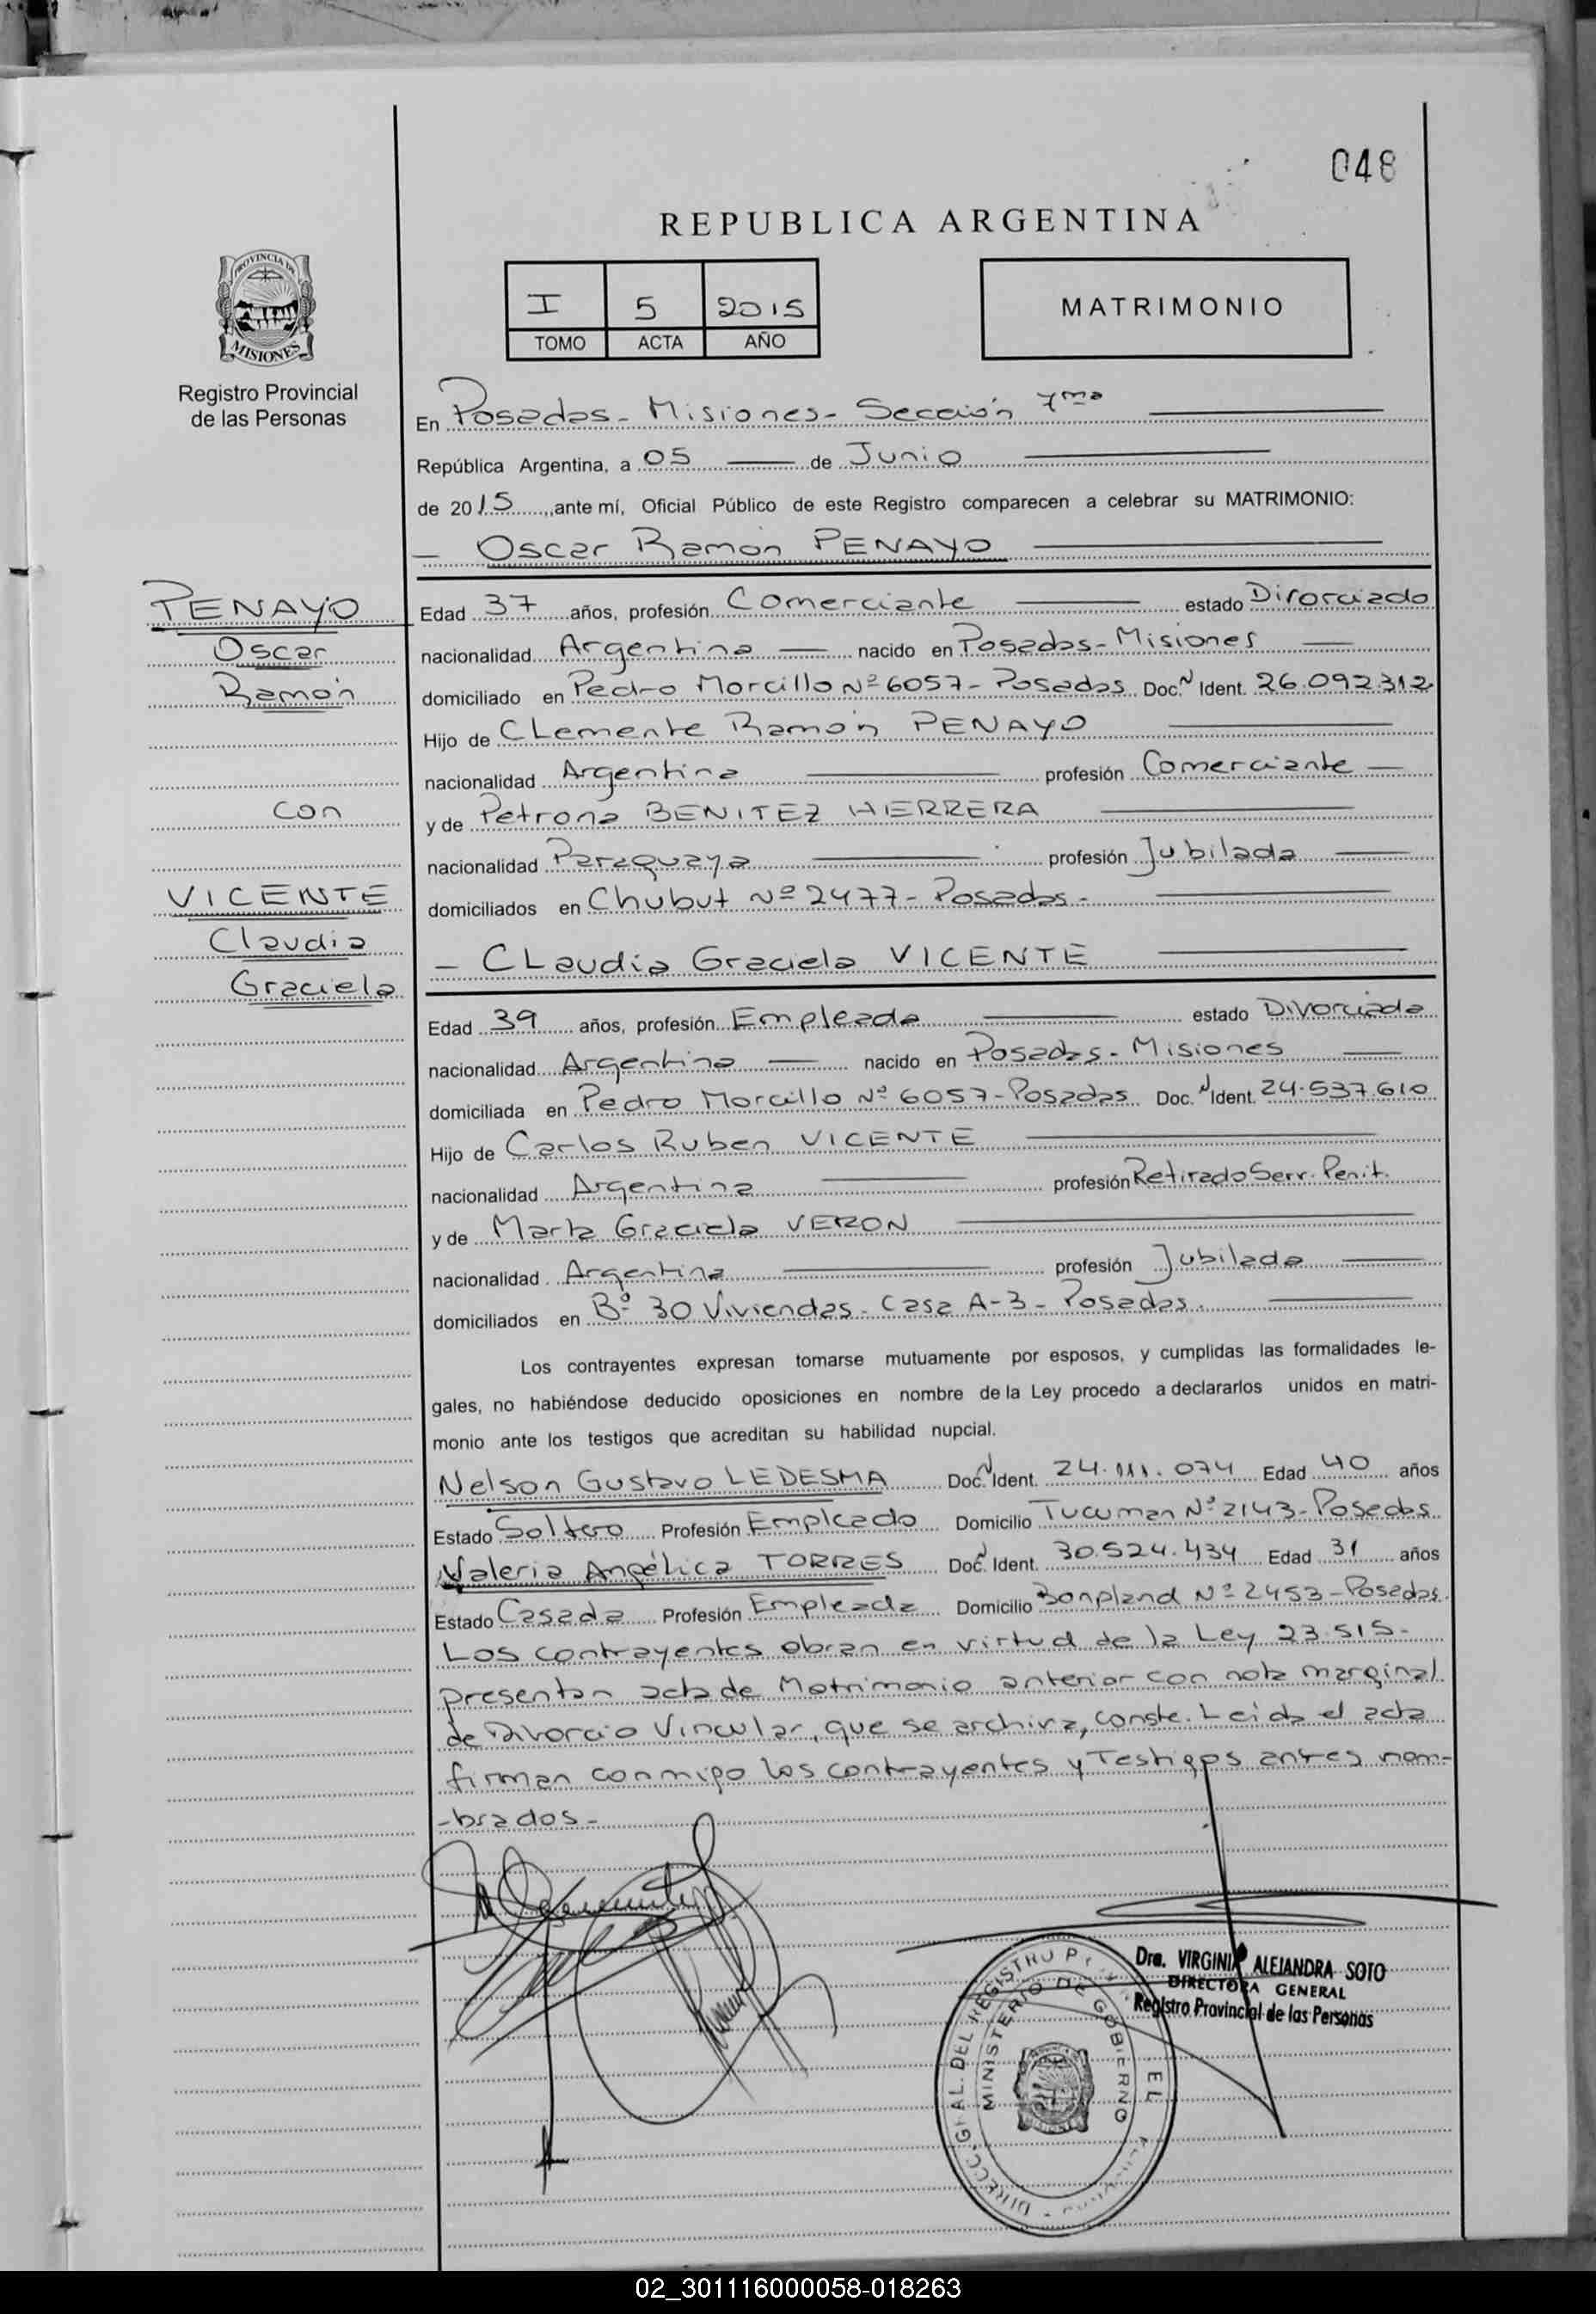 048
REPUBLICA ARGENTINA
PROVINCIA DE
MISIONES
Registro Provincial
de las Personas
I 5 2015
TOMO ACTA AÑO
MATRIMONIO
En Posadas - Misiones - Sección 7ma
República Argentina, a 05 de Junio
de 2015, ante mí, Oficial Público de este Registro comparecen a celebrar su MATRIMONIO:
- Oscar Ramón PENAYO
PENAYO
Oscar
Ramón
con
VICENTE
Claudia
Graciela
Edad 37 años, profesión Comerciante estado Divorciado
nacionalidad Argentina nacido en Posadas - Misiones
domiciliado en Pedro Morcillo Nº 6057 - Posadas Doc. N Ident. 26.092.312
Hijo de CLemente Ramón PENAYO
nacionalidad Argentina profesión Comerciante
y de Petrona BENITEZ HERRERA
nacionalidad Paraguaya profesión Jubilada
domiciliados en Chubut Nº 2477 - Posadas -
- CLaudia Graciela VICENTE
Edad 39 años, profesión Empleada estado Divorciada
nacionalidad Argentina nacido en Posadas - Misiones
domiciliada en Pedro Morcillo Nº 6057 - Posadas Doc. N Ident. 24.537.610
Hijo de Carlos Ruben VICENTE
nacionalidad Argentina profesión Retirado Serv. Penit.
y de Marta Graciela VERON
nacionalidad Argentina profesión Jubilada
domiciliados en Bº 30 Viviendas - Casa A-3 - Posadas.
Los contrayentes expresan tomarse mutuamente por esposos, y cumplidas las formalidades le-
gales, no habiéndose deducido oposiciones en nombre de la Ley procedo a declararlos unidos en matri-
monio ante los testigos que acreditan su habilidad nupcial.
Nelson Gustavo LEDESMA Doc. N Ident. 24.111.074 Edad 40 años
Estado Soltero Profesión Empleado Domicilio Tucuman Nº 2143 - Posadas
Valeria Angélica TORRES Doc. N Ident. 30.524.434 Edad 31 años
Estado Casada Profesión Empleada Domicilio Bonpland Nº 2453 - Posadas.
Los contrayentes obran en virtud de la Ley 23.515 -
presentan acta de Matrimonio anterior con nota marginal
de Divorcio Vincular, que se archiva, conste. Leida el acta
firman conmigo los contrayentes y Testigos antes nom-
-brados -
Dra. VIRGINIA ALEJANDRA SOTO
DIRECTORA GENERAL
Registro Provincial de las Personas
DIRECC. GRAL. DEL REGISTRO
MINISTERIO DE GOBIERNO
02_301116000058-018263